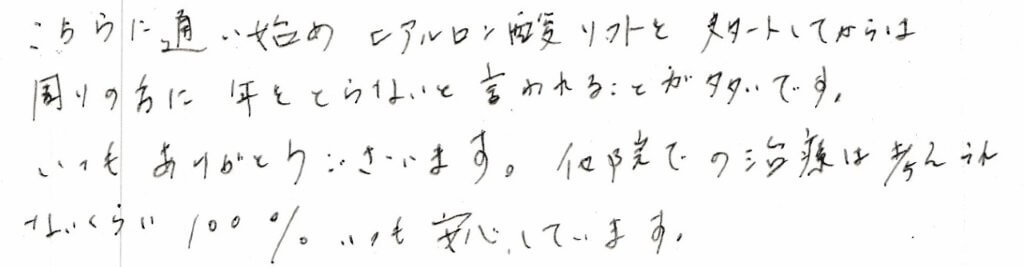 こちらに通い始め ヒアルロン酸リフトをスタートしてからは
周りの方に 年をとらないと言われることが多いです。
いつも ありがとうございます。他院での治療は考えられ
ないくらい 100%。いつも安心しています。